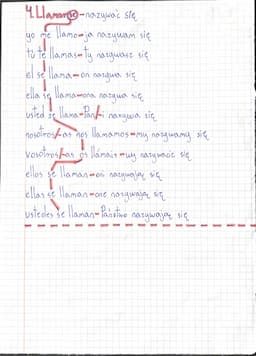 4. Llamarse - nazywać się
yo me llamo - ja nazywam się
tú te llamas - ty nazywasz się
él se llama - on nazywa się
ella se llama - ona nazywa się
usted se llama - Pan/i nazywa się
nosotros/as nos llamamos - my nazywamy się
vosotros/as os llamáis - wy nazywacie się
ellos se llaman - oni nazywają się
ellas se llaman - one nazywają się
ustedes se llaman - Państwo nazywają się